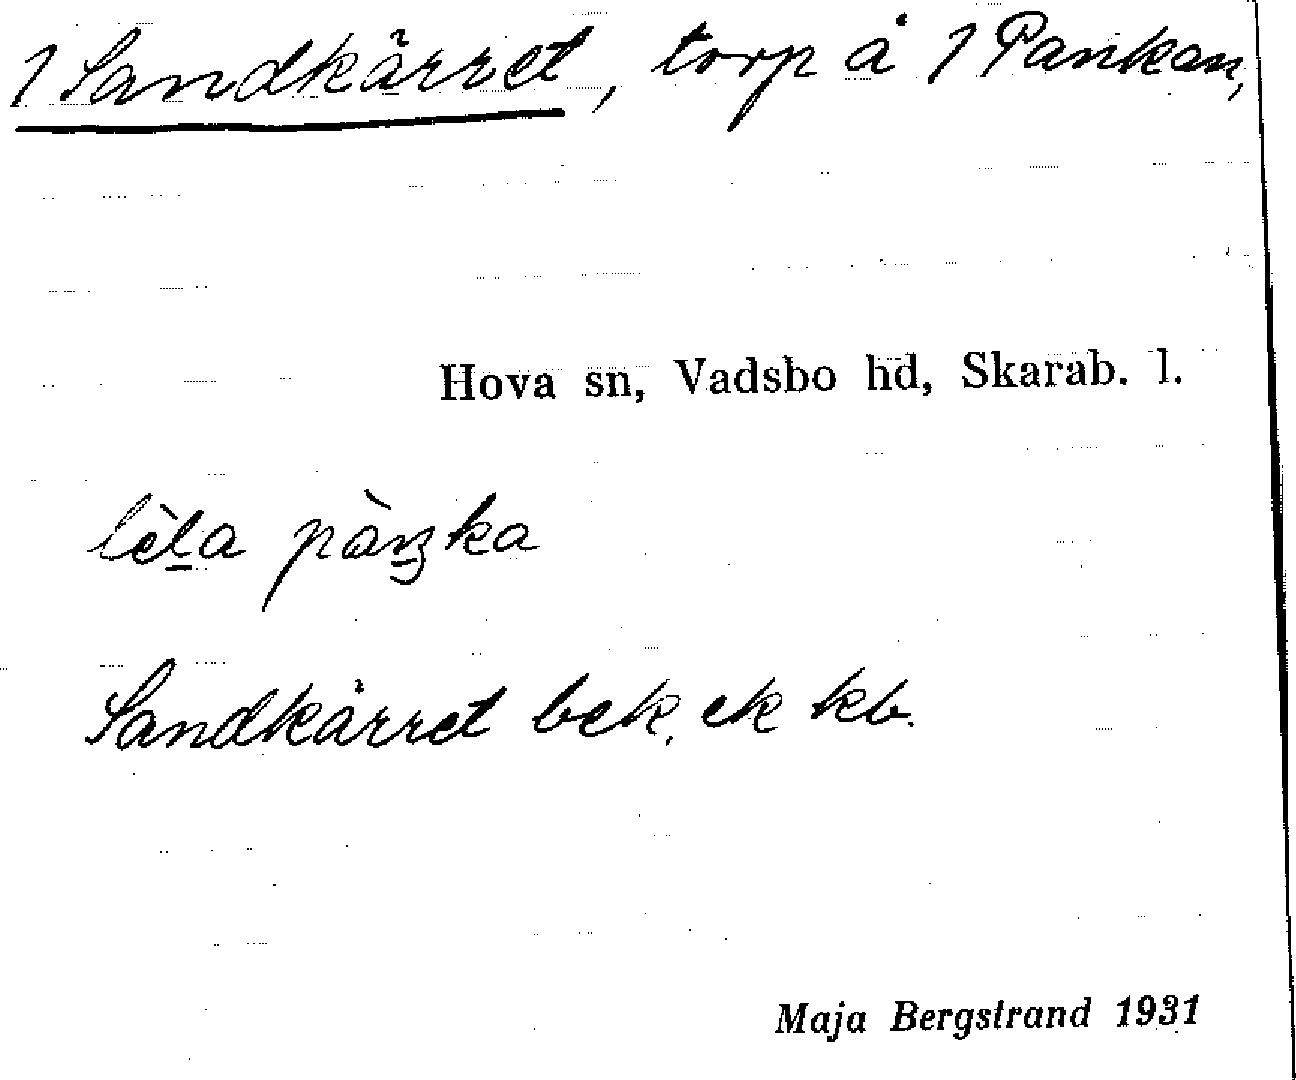 1 Sandkärret, torp å 1 Pankan,
Hova sn, Vadsbo hd, Skarab. l.
lèt̲a pàŋka
Sandkärret bek. ek kb.
Maja Bergstrand 1931